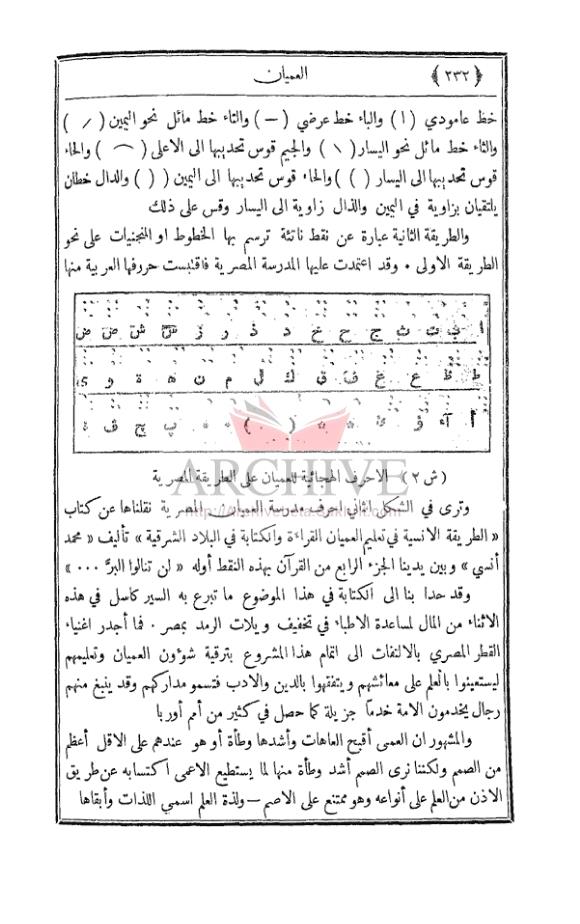 ﴿ ٢٣٢ ﴾ العميان
خط عامودي ( ا ) والباء خط عرضي ( — ) والتاء خط مائل نحو اليمين ( / )
والثاء خط مائل نحو اليسار ( \ ) والجيم قوس تحديبها الى الاعلى ( ⌒ ) والحاء
قوس تحديبها الى اليسار ( ( ) والخاء قوس تحديبها الى اليمين ( ) ) والدال خطان
يلتقيان بزاوية في اليمين والذال زاوية الى اليسار وقس على ذلك
والطريقة الثانية عبارة عن نقط ناتئة ترسم بها الخطوط او المنحنيات على نحو
الطريقة الاولى . وقد اعتمدت عليها المدرسة المصرية فاقتبست حروفها العربية منها
ا ب ت ث ج ح خ د ذ ر ز س ش ص ض
ط ظ ع غ ف ق ك ل م ن ه ة و ى
أ آ ؤ ئ ( ) پ چ ڤ
( ش ٢ ) الاحرف الهجائية للعميان على الطريقة المصرية
ARCHIVE
وترى في الشكل الثاني احرف مدرسة العميان المصرية نقلناها عن كتاب
« الطريقة الانسية في تعليم العميان القراءة والكتابة في البلاد الشرقية » تأليف « محمد
أنسي » وبين يدينا الجزء الرابع من القرآن بهذه النقط أوله « لن تنالوا البرَّ ... »
وقد حدا بنا الى الكتابة في هذا الموضوع ما تبرع به السير كاسل في هذه
الاثناء من المال لمساعدة الاطباء في تخفيف ويلات الرمد بمصر . فما أجدر اغنياء
القطر المصري بالالتفات الى اتمام هذا المشروع بترقية شؤون العميان وتعليمهم
ليستعينوا بالعلم على معائشهم ويتفقهوا بالدين والادب فتسمو مداركهم وقد ينبغ منهم
رجال يخدمون الامة خدماً جزيلة كما حصل في كثير من أمم أوربا
والمشهور ان العمى أقبح العاهات وأشدها وطأة أو هو عندهم على الاقل أعظم
من الصمم ولكننا نرى الصمم أشد وطأة منها لما يستطيع الاعمى اكتسابه عن طريق
الاذن من العلم على أنواعه وهو ممتنع على الاصم — ولذة العلم اسمي اللذات وأبقاها